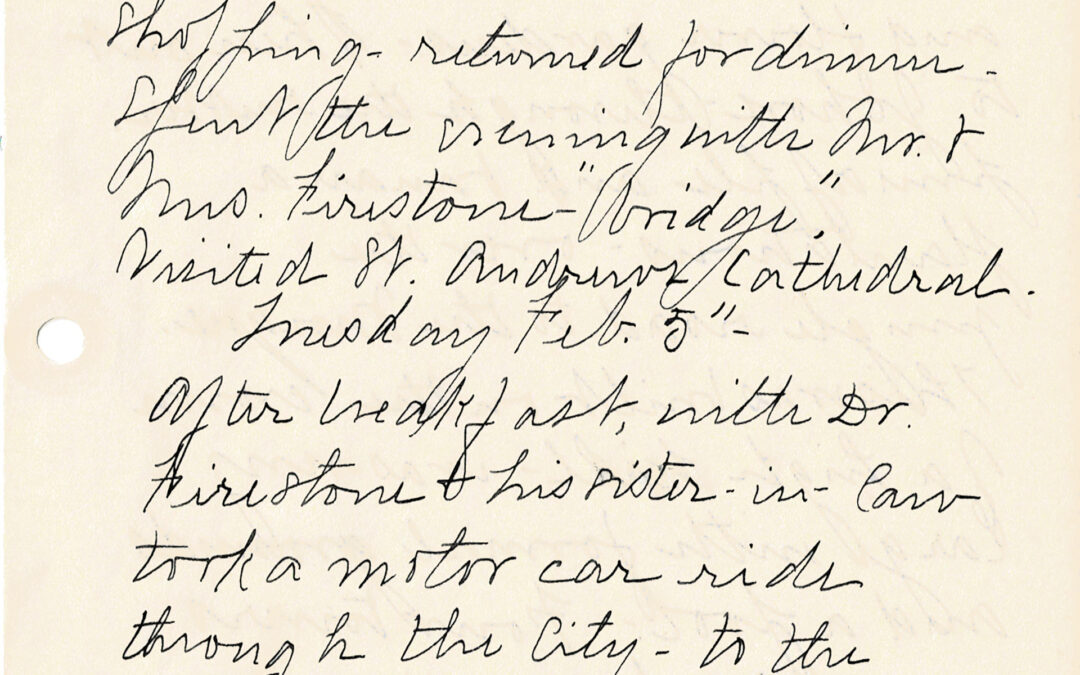 shopping - returned for dinner -
Spent the evening with Mr. &
Mrs. Firestone - "bridge".
Visited St. Andrews Cathedral.
Tuesday Feb. 5" -
After breakfast, with Dr.
Firestone & his sister-in-law
took a motor car ride
through the City - to the